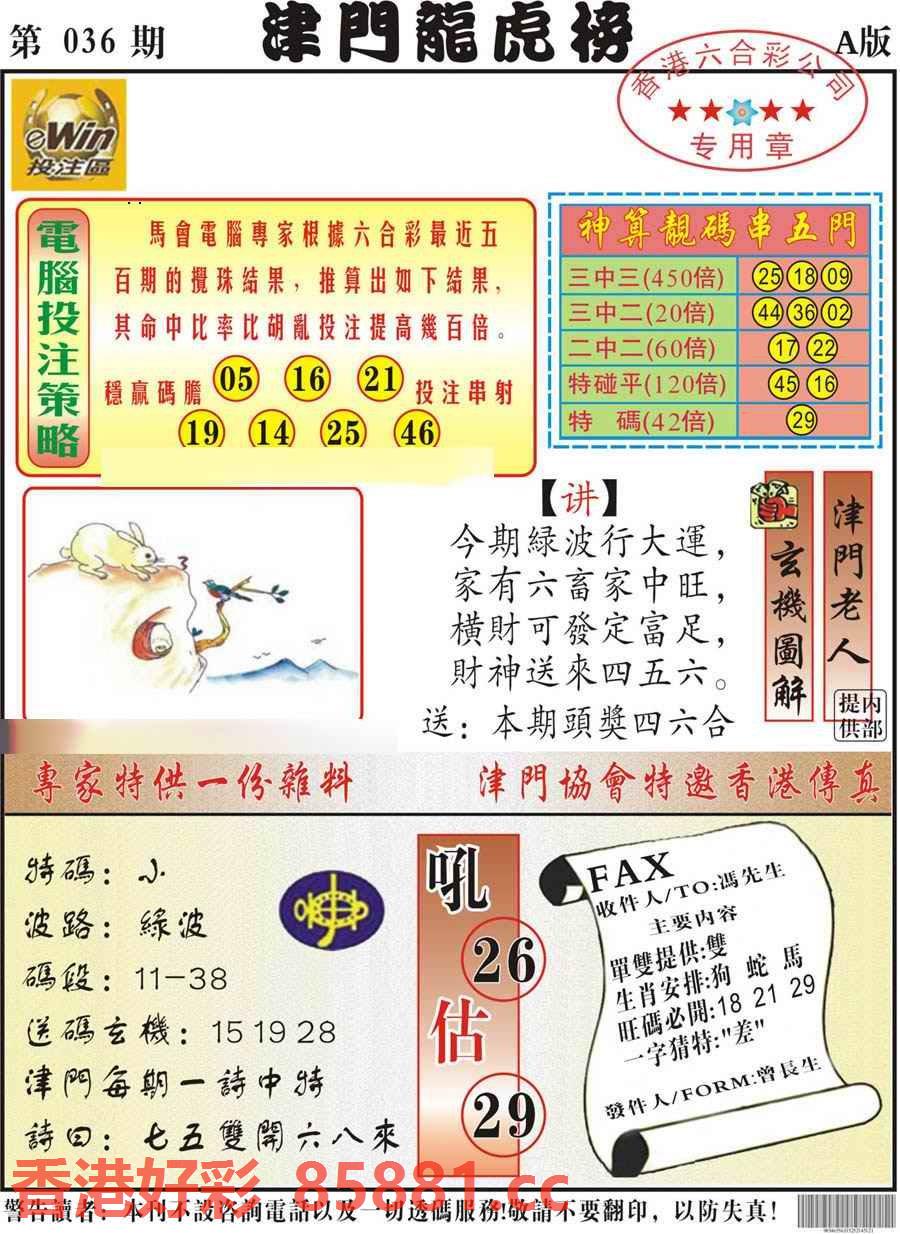 第 036 期
津門龍虎榜
A版
香港六合彩公司
专用章
eWin
投注區
電腦投注策略
馬會電腦專家根據六合彩最近五
百期的攪珠結果，推算出如下結果，
其命中比率比胡亂投注提高幾百倍。
穩贏碼膽 05 16 21 投注串射
19 14 25 46
神算靚碼串五門
三中三(450倍) 25 18 09
三中二(20倍) 44 36 02
二中二(60倍) 17 22
特碰平(120倍) 45 16
特 碼(42倍) 29
【讲】
今期綠波行大運，
家有六畜家中旺，
橫財可發定富足，
財神送來四五六。
送：本期頭獎四六合
玄機圖解
津門老人
提内
供部
專家特供一份雜料
津門協會特邀香港傳真
特碼：小
波路：綠波
碼段：11-38
送碼玄機：15 19 28
津門每期一詩中特
詩曰：七五雙開六八來
吼
26
估
29
FAX
收件人/TO:馮先生
主要内容
單雙提供:雙
生肖安排:狗 蛇 馬
旺碼必開:18 21 29
一字猜特:"差"
發件人/FORM:曾長生
香港好彩 85881.cc
警告讀者：本刊不設咨詢電話以及一切透碼服務!敬請不要翻印，以防失真!